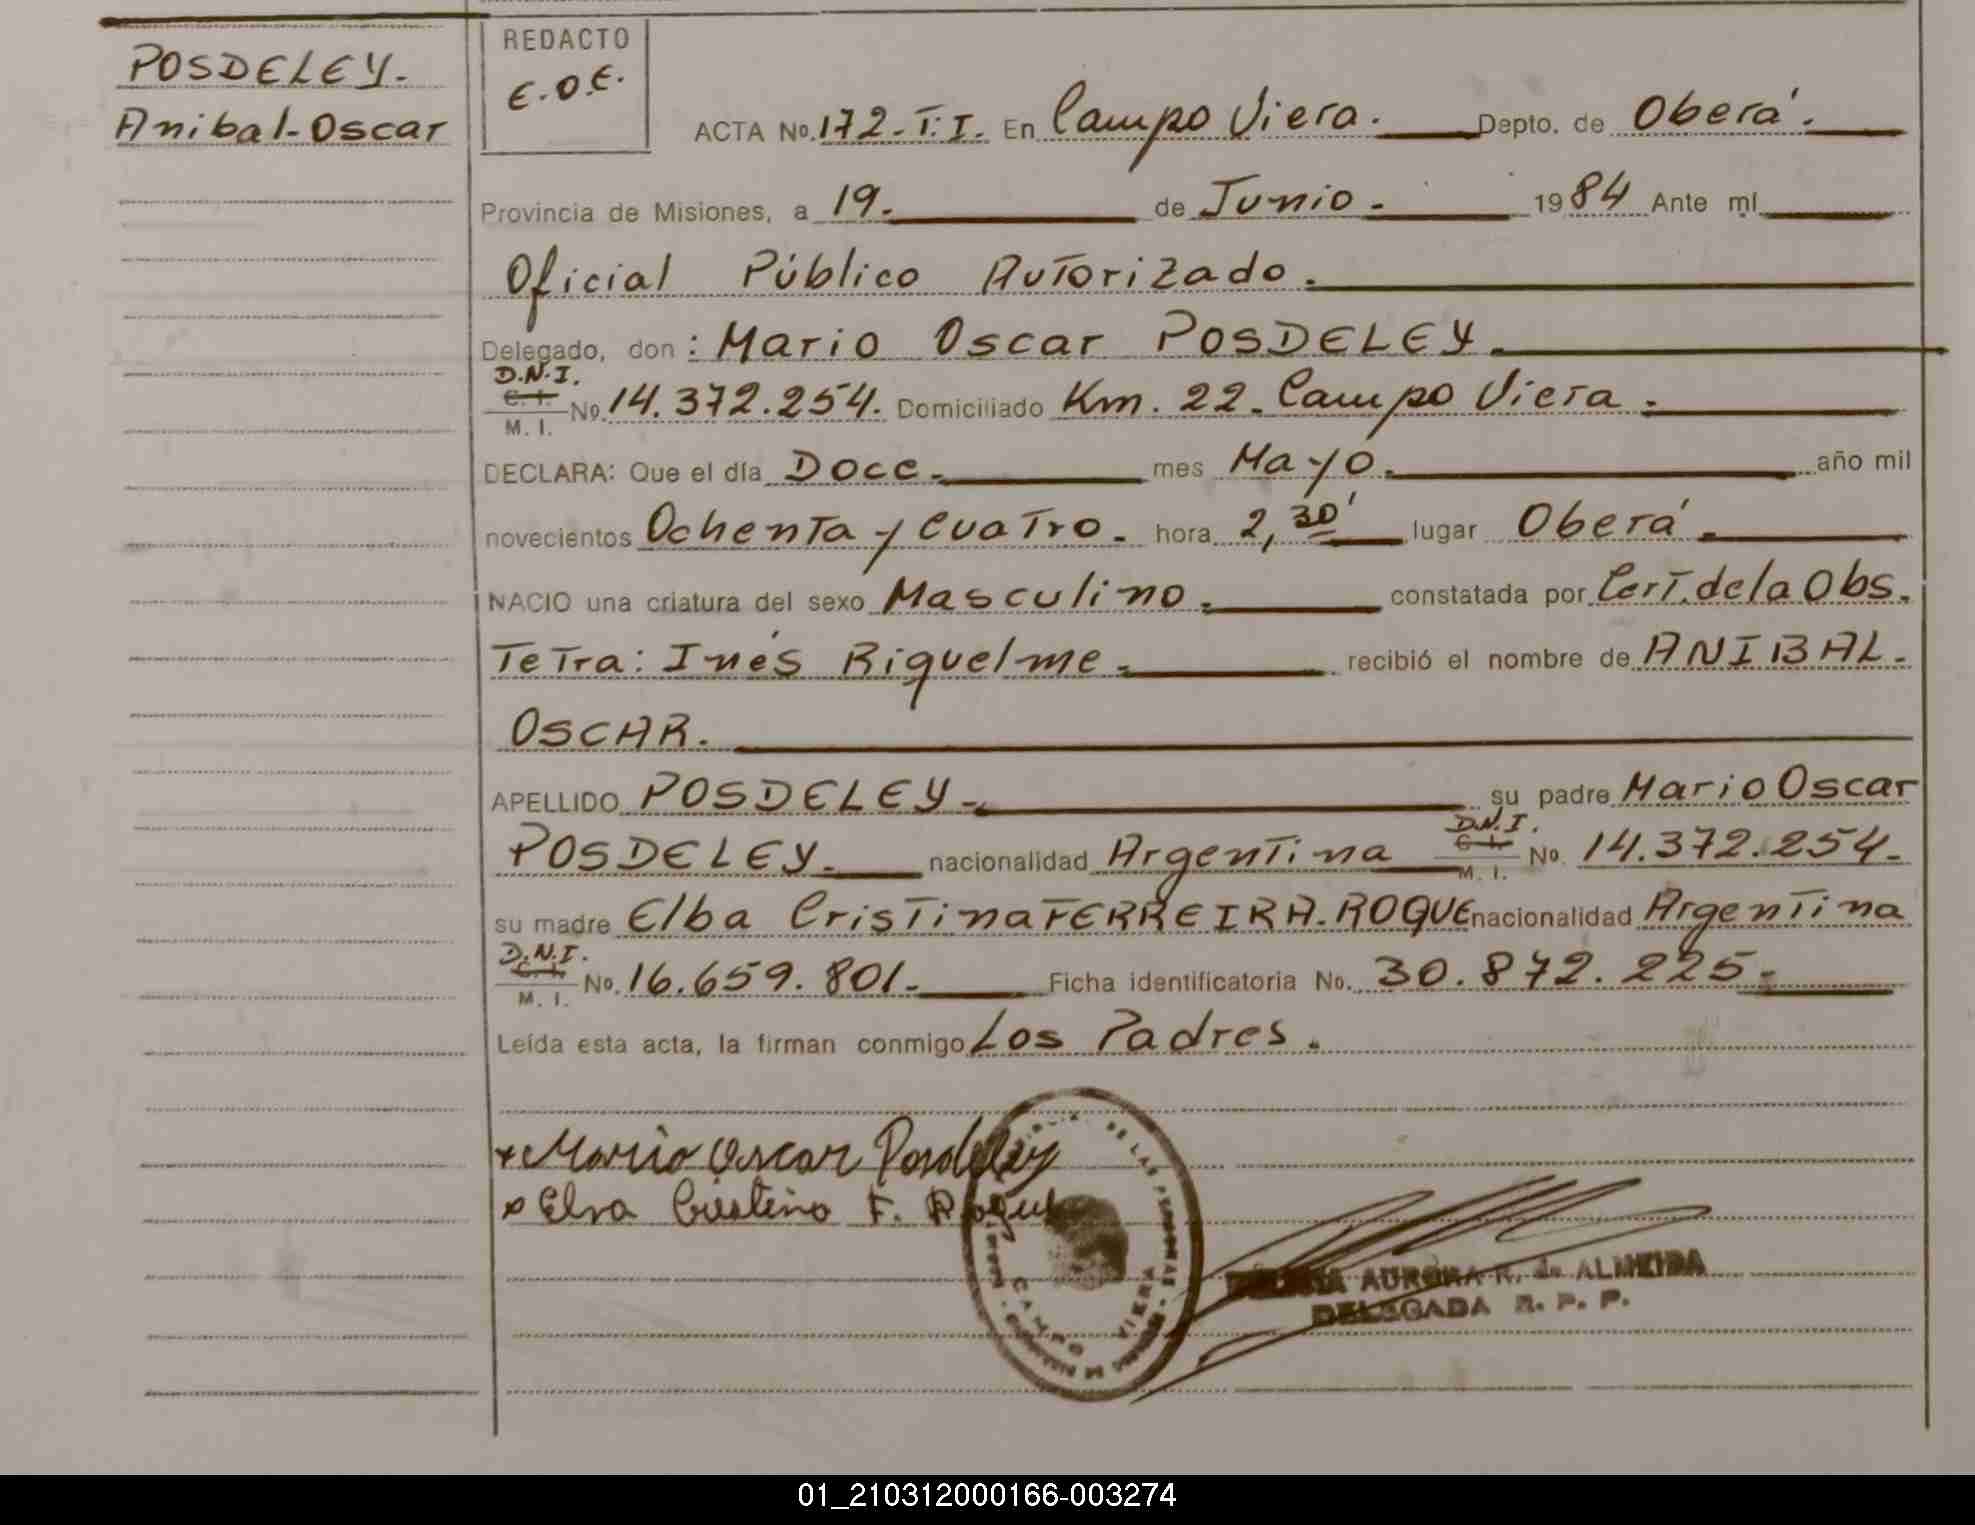 POSDELEY.
Anibal-Oscar
REDACTO
E.O.E.
ACTA No. 172-T.I. En Campo Viera. Depto. de Oberá.
Provincia de Misiones, a 19. de Junio. 1984 Ante mí
Oficial Público Autorizado.
Delegado, don: Mario Oscar POSDELEY.
D.N.I.
C. I.
M. I. No. 14.372.254. Domiciliado Km. 22. Campo Viera.
DECLARA: Que el día Doce. mes Mayo. año mil
novecientos Ochenta y Cuatro. hora 2,30' lugar Oberá.
NACIO una criatura del sexo Masculino. constatada por Cert. de la Obs.
Tetra: Inés Riquelme. recibió el nombre de ANIBAL.
OSCAR.
APELLIDO POSDELEY. su padre Mario Oscar
POSDELEY. nacionalidad Argentina D.N.I. C. I. M. I. No. 14.372.254.
su madre Elba Cristina FERREIRA-ROQUE nacionalidad Argentina
D.N.I.
C. I.
M. I. No. 16.659.801. Ficha identificatoria No. 30.872.225.
Leída esta acta, la firman conmigo Los Padres.
x Mario Oscar Posdeley
x Elva Cristina F. Roque
DE LAS PERSONAS
CAMPO VIERA
AURORA R. de ALMEIDA
DELEGADA R. P. P.
01_210312000166-003274